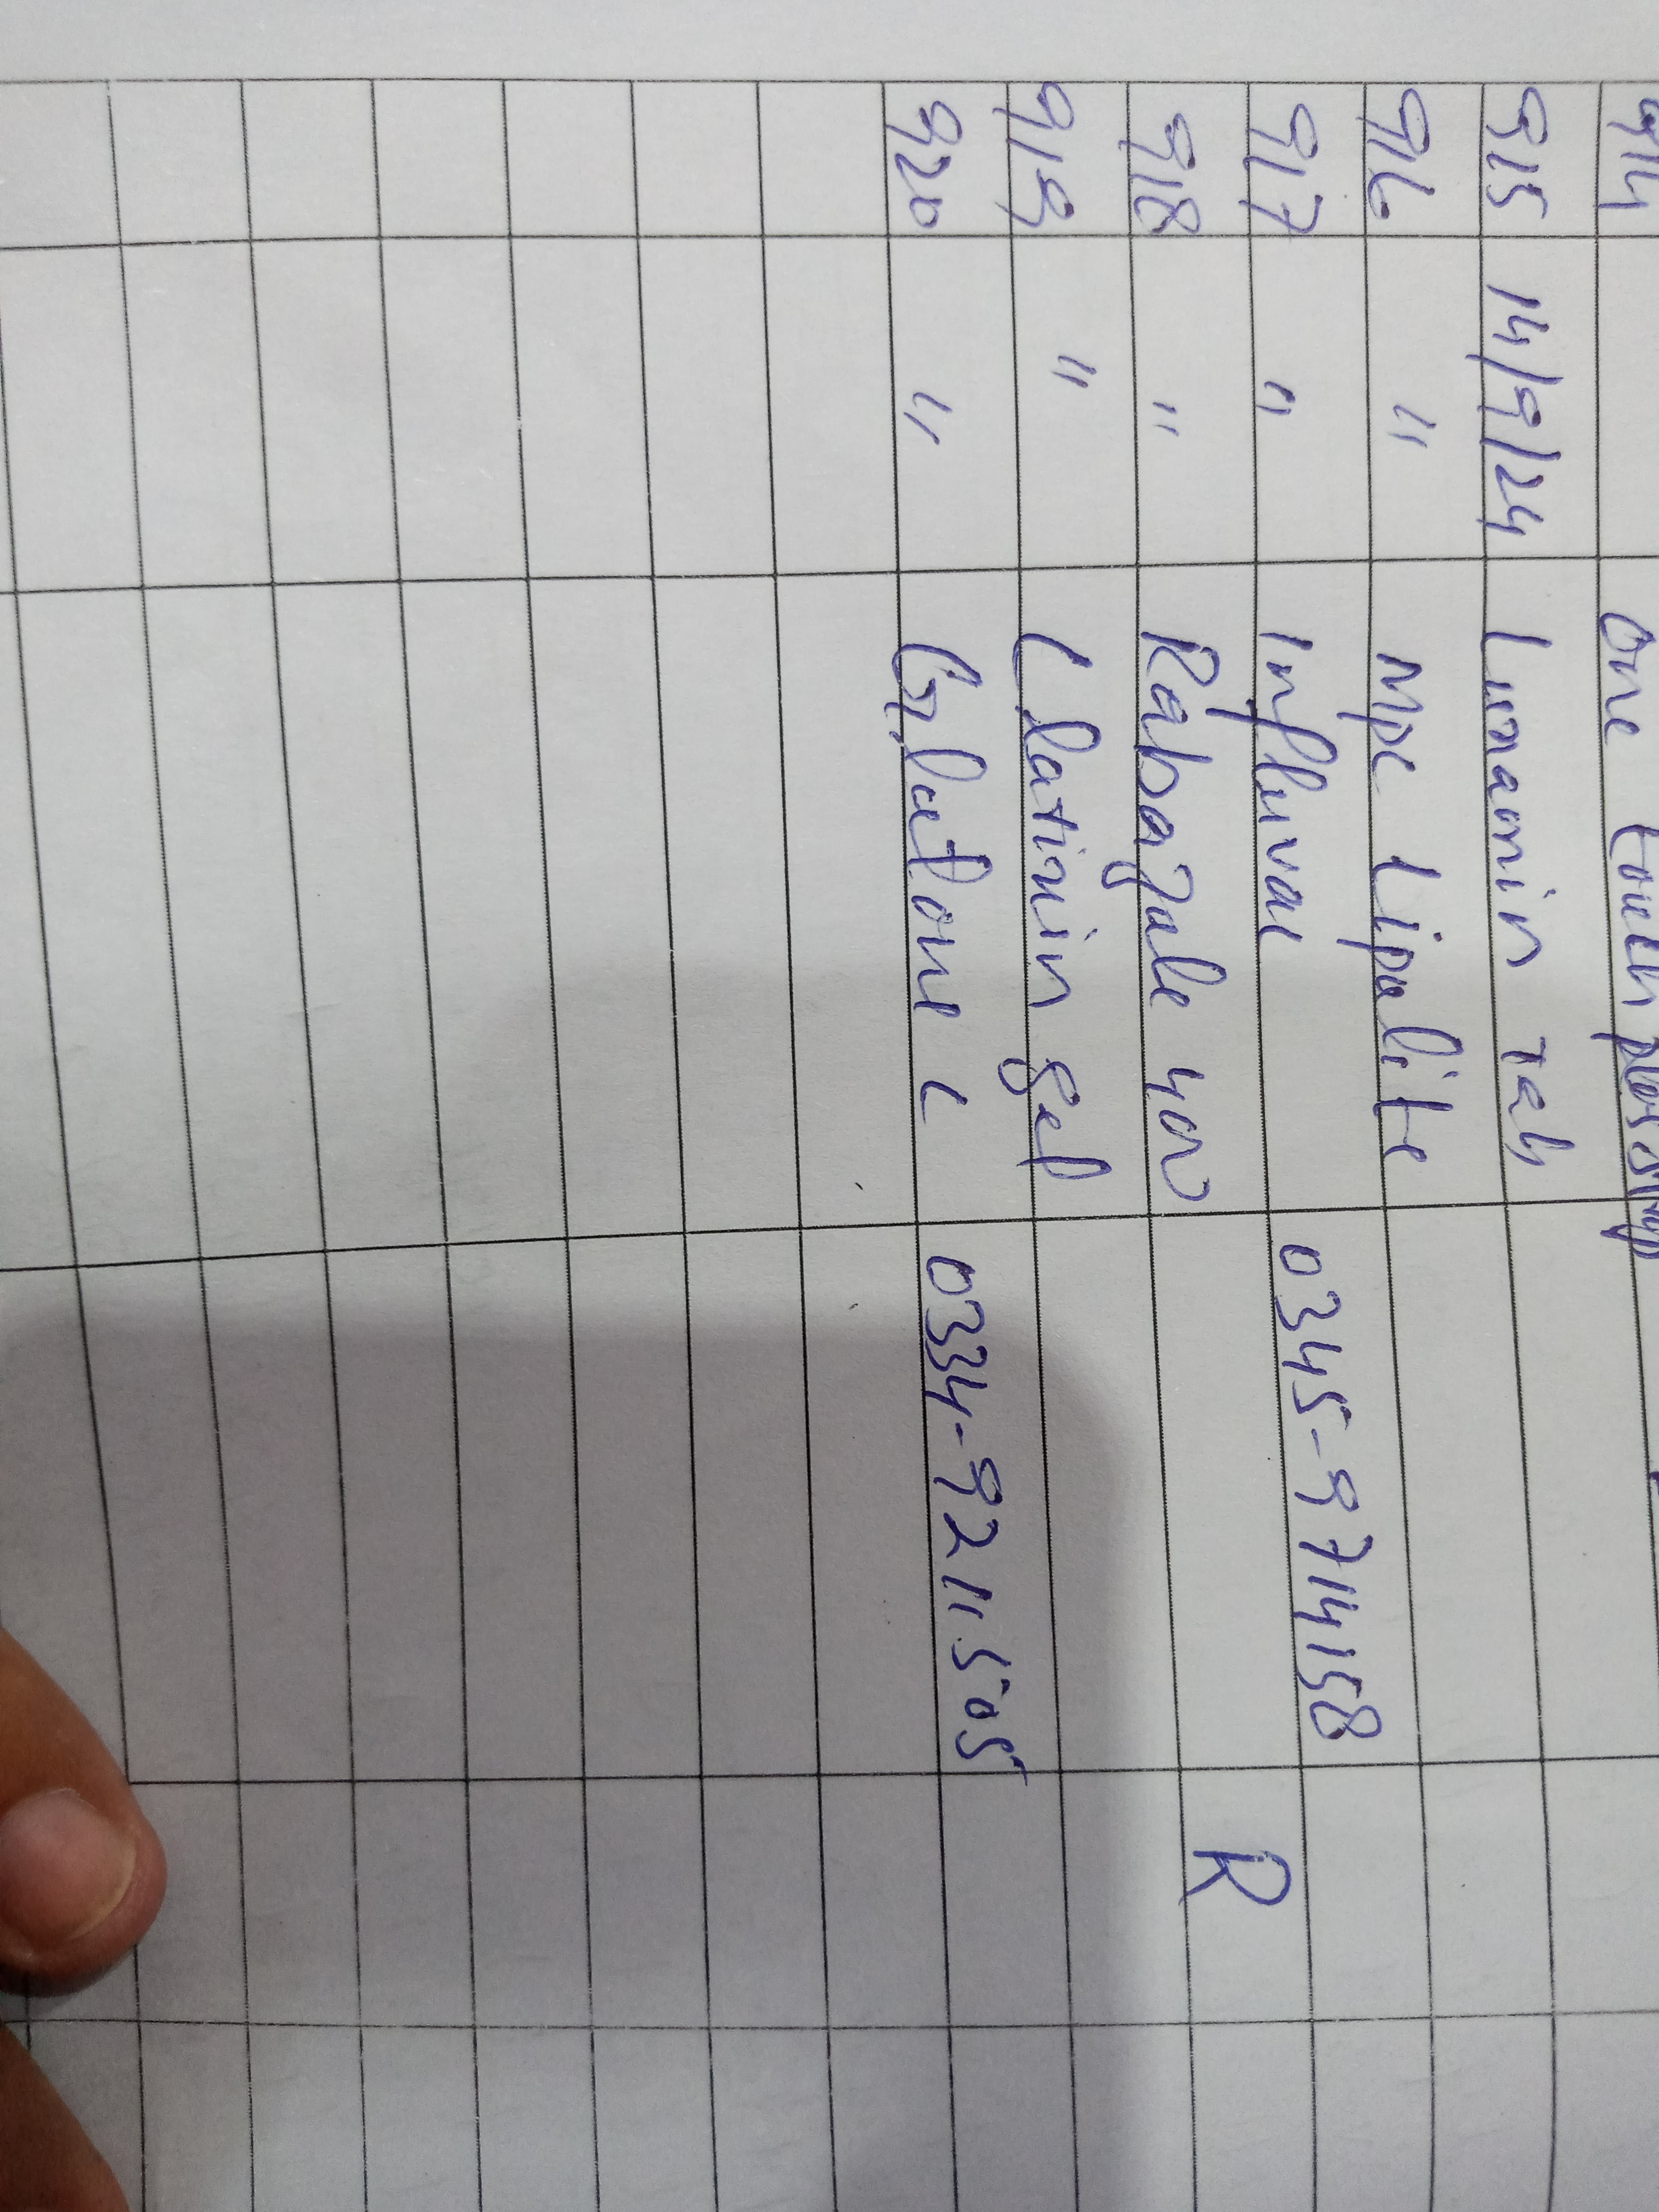 914 One touch plus strip
915 14/9/24 Lumamin Tab
916 " Mpc Lipolite
917 " Influvac 0345-9714158
918 " Rabazole 40 R
919 " Clationin gel
920 " Gylatone C 0334-9211505